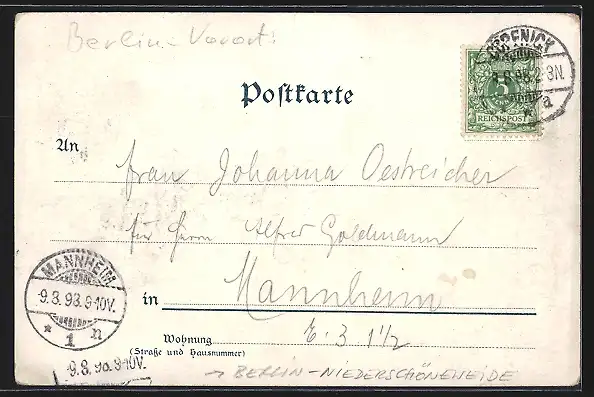 Berlin - Vorort:
CÖPENICK
8.8.98.2-3N.
a
5
REICHSPOST
Postkarte
An
Frau Johanna Oestreicher
für Herrn Alfred Goldmann
MANNHEIM
9.8.98.9-10V.
* 1 n
in Mannheim
E. 3 1½
Wohnung
(Straße und Hausnummer)
9.8.98.9-10V.
→ BERLIN-NIEDERSCHÖNEWEIDE